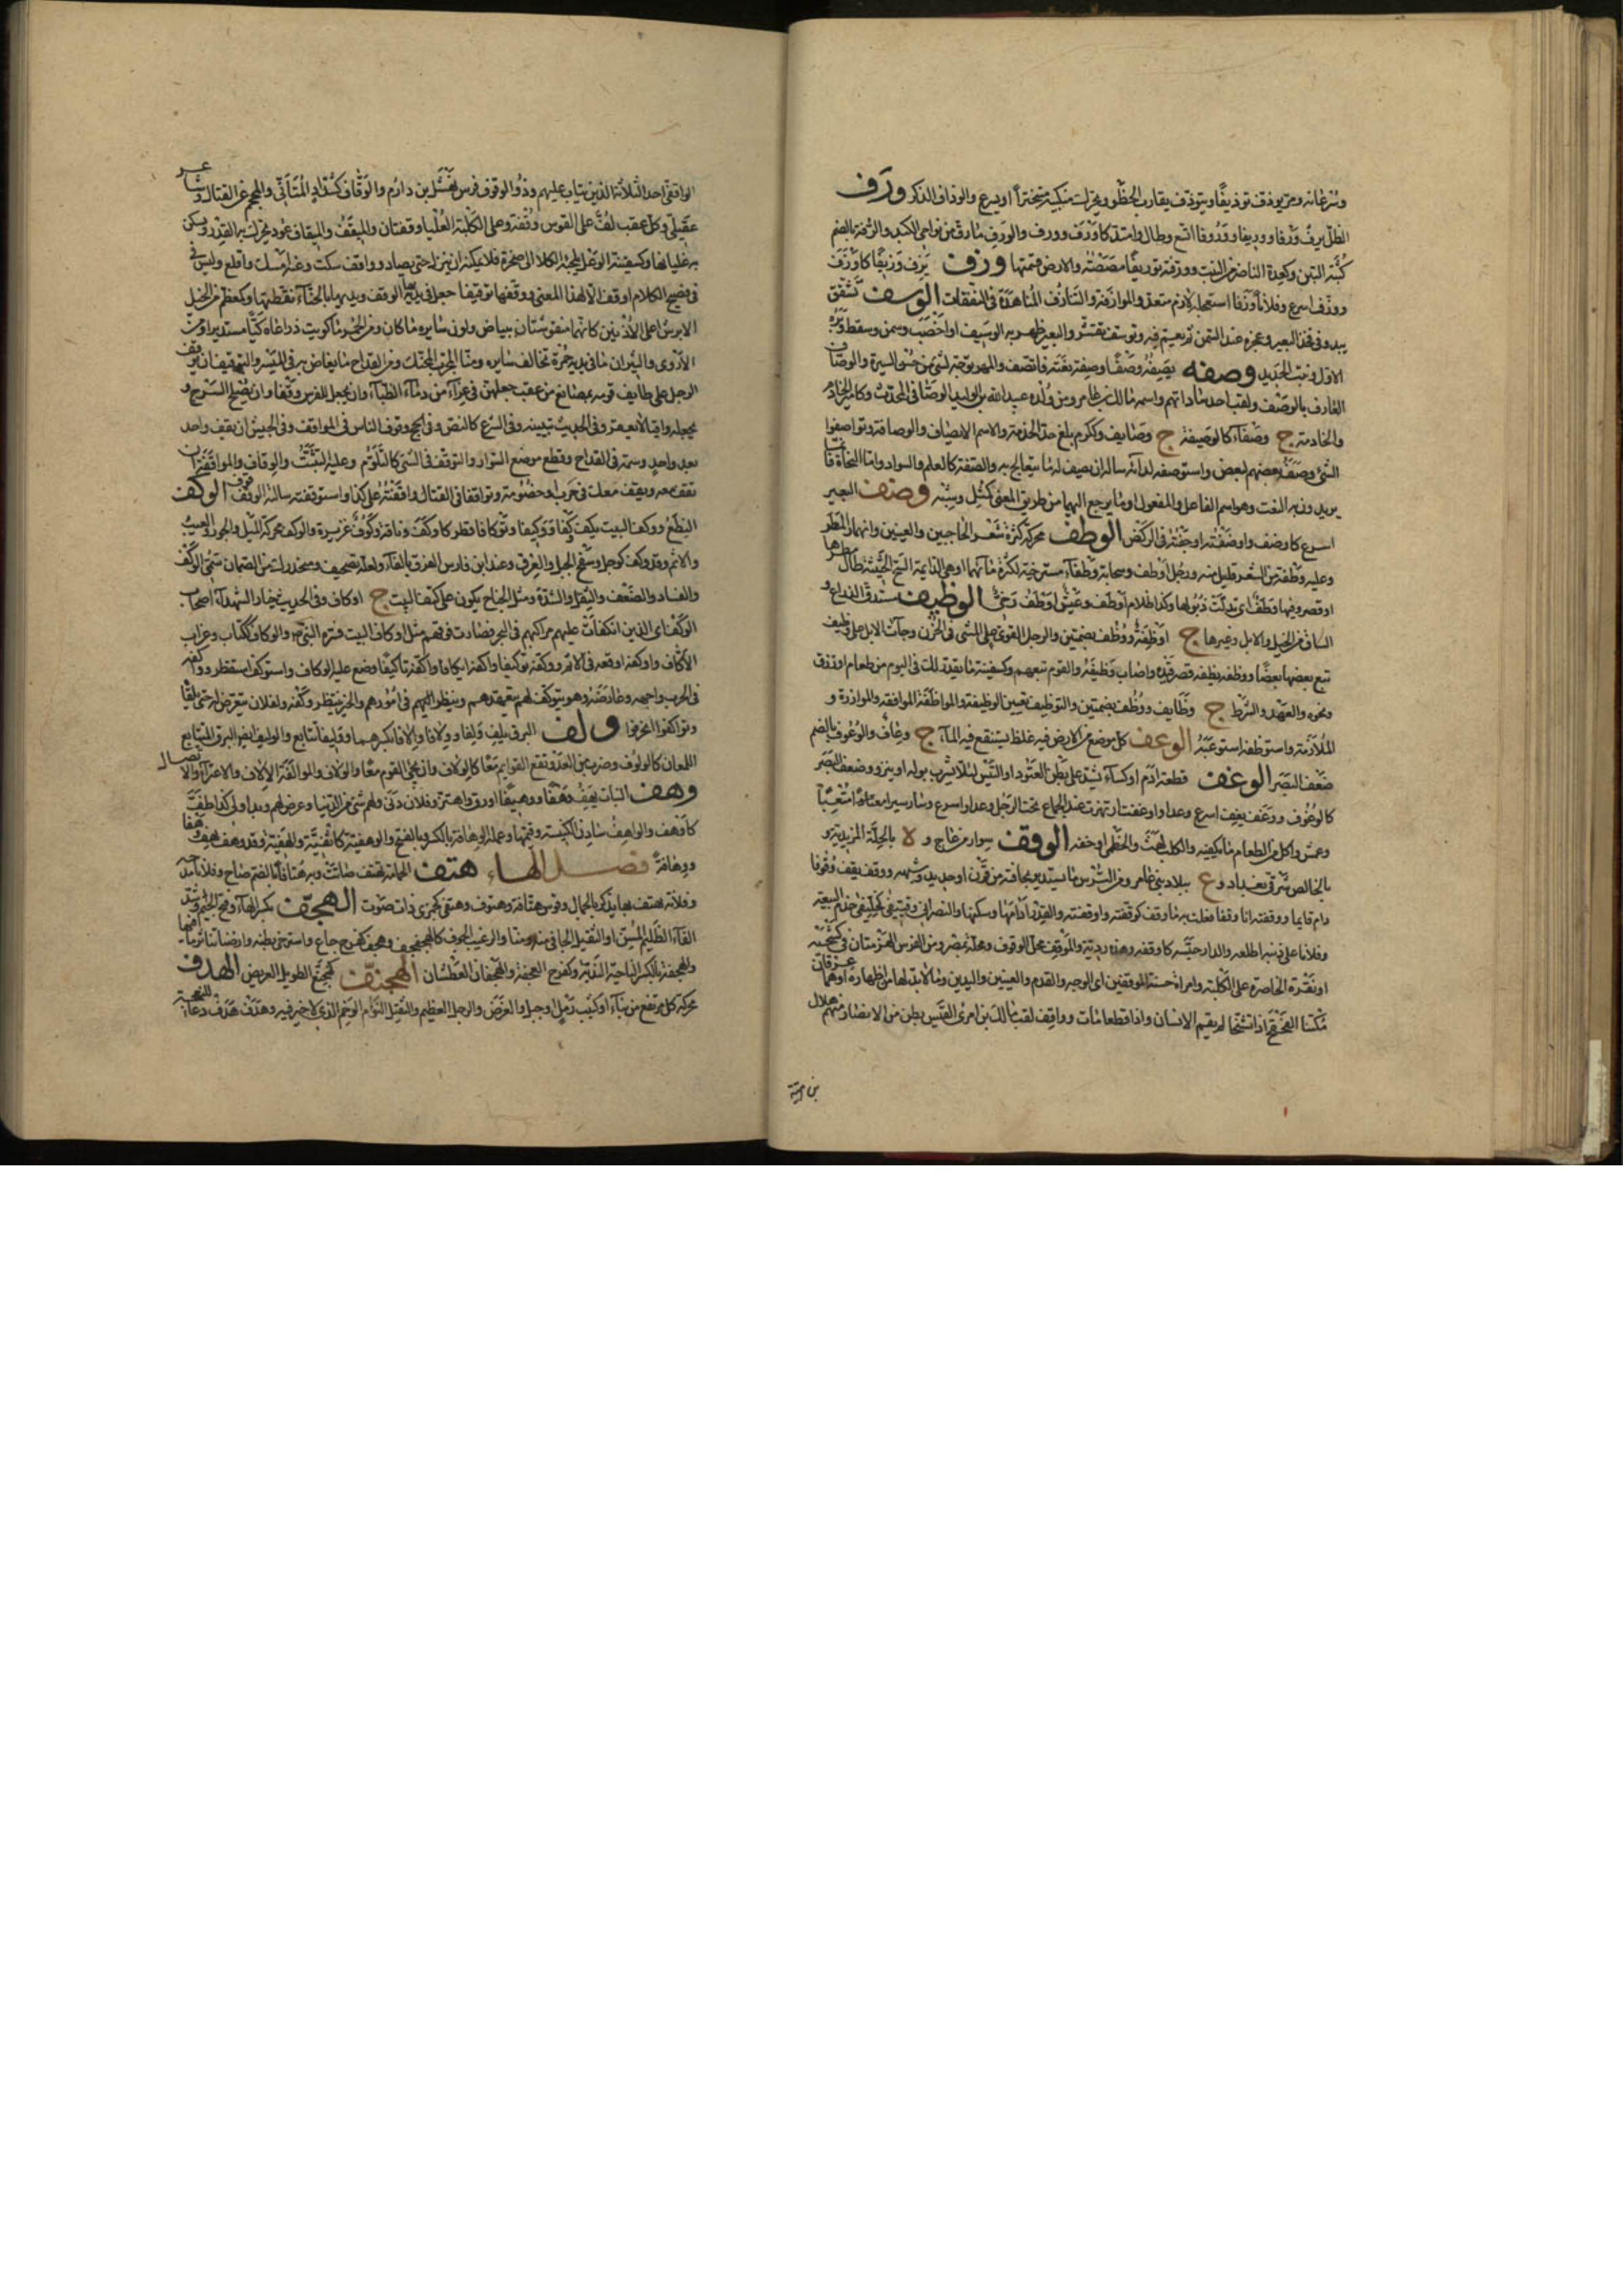 وسرعانه ومر يوذف توذيفا ويتوذف يقارب الخطو ويحرك منكبيه متبخترا او يسرع والوذاف الذكر ورف
الظل يرف ورفا ووريفا ووروفا اتسع وطال وامتد كاورف وورف والورف ما رق من نواحي الكبد والرفة بالضم
كسرة التبن وكعدة الناضر من النبت وورفته توريفا مصصته والارض قسمتها وزف يزف وزيفا كاوزف
ووزف اسرع وفلانا وزفا استعجله لازم متعد والموازفة والتوازف المناهدة في النفقات الوسف تشقق
يبدو في فخذ البعير وعجزه عند السمن ثم يعم فيه وتوسف تقشر والبعير ظهر به الوسف او اخصب وسمن وسقط وبره
الاول ونبت الجديد وصفه يصفه وصفا وصفة نعته فاتصف والمهر توجه لشيء من حسن السيرة والوصاف
العارف بالوصف ولقب احد ساداتهم واسمه مالك بن عامر ومن ولده عبيد الله بن الوليد الوصافي المحدث وكامير الخادم
والخادمة ج وصفاء كالوصيفة ج وصائف وككرم بلغ حد الخدمة والاسم الايصاف والوصافة وتواصفوا
الشيء وصفه بعضهم لبعض واستوصفه لدائه ساله ان يصف له ما يتعالج به والصفة كالعلم والسواد واما النحاة فانما
يريدون به النعت وهو اسم الفاعل والمفعول او ما يرجع اليهما من طريق المعنى كمثل وشبه وضف البعير
اسرع كاوضف واوضفته اوجفته في الركض الوطف محركة كثرة شعر الحاجبين والعينين وانهمار المطر
وعليه وطفة من الشعر قليل منه ورجل اوطف وسحابة وطفاء مسترخية لكثرة مائها او هي الدائمة السح الحثيثة طال مطرها
او قصر وفيها وطف اي تدلت ذيولها وكذا ظلام اوطف وعيش اوطف رخي الوظيف مستدق الذراع و
الساق من الخيل والابل وغيرها ج اوظفة ووظف بضمتين والرجل القوي على المشي في الحزن وجاءت الابل على وظيف
تبع بعضها بعضا ووظفه يظفه قصر قيده واصاب وظيفه والقوم تبعهم وكسفينة ما يقدر لك في اليوم من طعام او رزق
ونحوه والعهد والشرط ج وظائف ووظف بضمتين والتوظيف تعيين الوظيفة والمواظفة الموافقة والموازرة و
الملازمة واستوظفه استوعبه الوعف كل موضع من الارض فيه غلظ يستنقع فيه الماء ج وعاف والوعوف بالضم
ضعف البصر الوغف قطعة ادم او كساء يشد على بطن العتود او التيس لئلا يشرب بوله او ينزو وضعف البصر
كالوغوف ووغف يغف اسرع وعدا واوغفت ارتهزت عند الجماع تحت الرجل وعدا واسرع وسار سيرا معناه متعبا
وعمش واكل من الطعام ما يكفيه والكلب لهث والخطمي اوخفه الوقف سوار من عاج و ة بالحلة المزيدية و
بالخالص شرقي بغداد و ع ببلاد بني عامر ومن الترس ما يستدير بحافته من قرن او حديد وشبهه ووقف يقف وقوفا
دام قائما ووقفته انا وقفا فعلت به ما وقف كوقفته واوقفته والقدر ادامها وسكنها والنصراني وقيفى كخليفى خدم البيعة
وفلانا على ذنبه اطلعه والدار حبسه كاوقفه وهذه ردية والموقف محل الوقوف ومحلة بمصر ومن الفرس الهزمتان في كشحيه
او نقرة الخاصرة على الكلية وامراة حسنة الموقفين اي الوجه والقدم والعينين واليدين وما لا بد لها من اظهاره او هما عرقان
مكتنفا القحقح اذا تشنجا لم يقم الانسان واذا قطعا مات وواقف لقب مالك بن امرئ القيس بطن من الانصار منهم هلال
بن امية
الواقفي احد الثلاثة الذين تيب عليهم وذو الوقوف فرس نهشل بن دارم والوقاف كشداد المتاني والمحجم عن القتال وشاعر
عقيلي وكل عقب لف على القوس وقفة وعلى الكلية العليا وقفتان والميقف والميقاف عود يحرك به القدر ويسكن
به غليانها وكسفينة الوعل تلجئه الكلاب الى صخرة فلا يمكنه ان ينزل حتى يصاد وواقف سكت وعنه امسك واقلع وليس في
فصيح الكلام اوقف الا لهذا المعنى ووقفها توقيفا جعل في يديها الوقف ويديها بالحناء نقطها وكمعظم من الخيل
الابرش اعلى الاذنين كانهما منقوشتان ببياض ولون سائره ما كان ومن الحمر ما كويت ذراعاه كيا مستديرا ومن
الاروى والثيران ما في يديه حمرة تخالف سائره ومنا المجرب المحنك ومن القداح ما يفاض به في الميسر والتوقيف ان يوقف
الرجل على طائف قوسه بمضائغ من عقب جعلهن في غراء من دماء الظباء وان يجعل للفرس وقفا وان يصلح السرج و
يجعله واقيا لا يعقر وفي الحديث تبيينه وفي الشرع كالنص وفي الحج وقوف الناس في المواقف وفي الجيش ان يقف واحد
بعد واحد وسمة في القداح وقطع موضع السوار والتوقف في الشيء كالتلوم وعليه التثبت والوقاف والمواقفة ان
تقف معه ويقف معك في حرب او خصومة وتواقفا في القتال وواقفته على كذا واستوقفته سالته الوقوف الوكف
النطع ووكف البيت يكف وكفا ووكيفا وتوكافا قطر كاوكف وناقة وكوف غزيرة والوكف محركة الميل والجور والعيب
والاثم وقد وكف كوجل وسفح الجبل والعرق وعند ابن فارس الفرق بالفاء ولعله تصحيف ومنحدرك من الصمان سمي الوكف
والفساد والضعف والثقل والشدة ومثل الجناح يكون على كنف البيت ج اوكاف وفي الحديث خيار الشهداء اصحاب
الوكف اي الذين انكفات عليهم مراكبهم في البحر فصارت فوقهم مثل اوكاف البيت فسره النبي والوكاف ككتاب وغراب
الاكاف واوكفه اوقعه في الاثم ووكفه توكيفا واكفه ايكافا واكفه تاكيفا وضع عليه الوكاف واستوكف استقطر وواكفه
في الحرب واجهه وعارضه وهو يتوكف لهم يتعهدهم وينظر اليهم في امورهم والخبر ينتظر وكفه ولفلان يتعرض له حتى يلقاه
وتواكفوا انحرفوا ولف البرق يلف وليفا وولافا والافا بكسرهما ووليفا تتابع والوليف ايضا البرق المتتابع
اللمعان كالولوف وضرب من العدو تقع القوائم معا كالولاف وان يجيء القوم معا والولاف والموالفة الالاف والاعتزاء والاتصال
وهف النبات يهف وهفا ووهيفا اورق واهتز وفلان دنى ولهم شيء من الدنيا وعرض لهم وبدا ولي كذا طف
كاوهف والواهف سادن الكنيسة وقيمها وعمله الوهافة بالكسر وبالفتح والوهفية كاثفية والهفية وقد وهف يهف وهفا
ووهافة فصل الهاء هتف الحمامة تهتف صاتت وبه هتافا بالضم صاح وفلانا مدحه
وفلانة يهتف بها يذكر بالجمال وقوس هتافة وهتوف وهتفى كجمزى ذات صوت الهجف بكسر الهاء وفتح الجيم وشد
الفاء الظليم المسن او الثقيل الجافي منه ومنا والرغيب الجوف كالهجفجف وهجف كفرح جاع واسترخى بطنه
والهجفة بالكسر الناحية الندية وكفرح العجفة والهجفان العطشان الهجنف كهجنع الطويل العريض الهدف
محركة كل مرتفع من بناء او كثيب رمل او جبل والغرض والرجل العظيم والثقيل النؤام الوخم الذي لا خير فيه وهدف هدف دعاء للنعجة